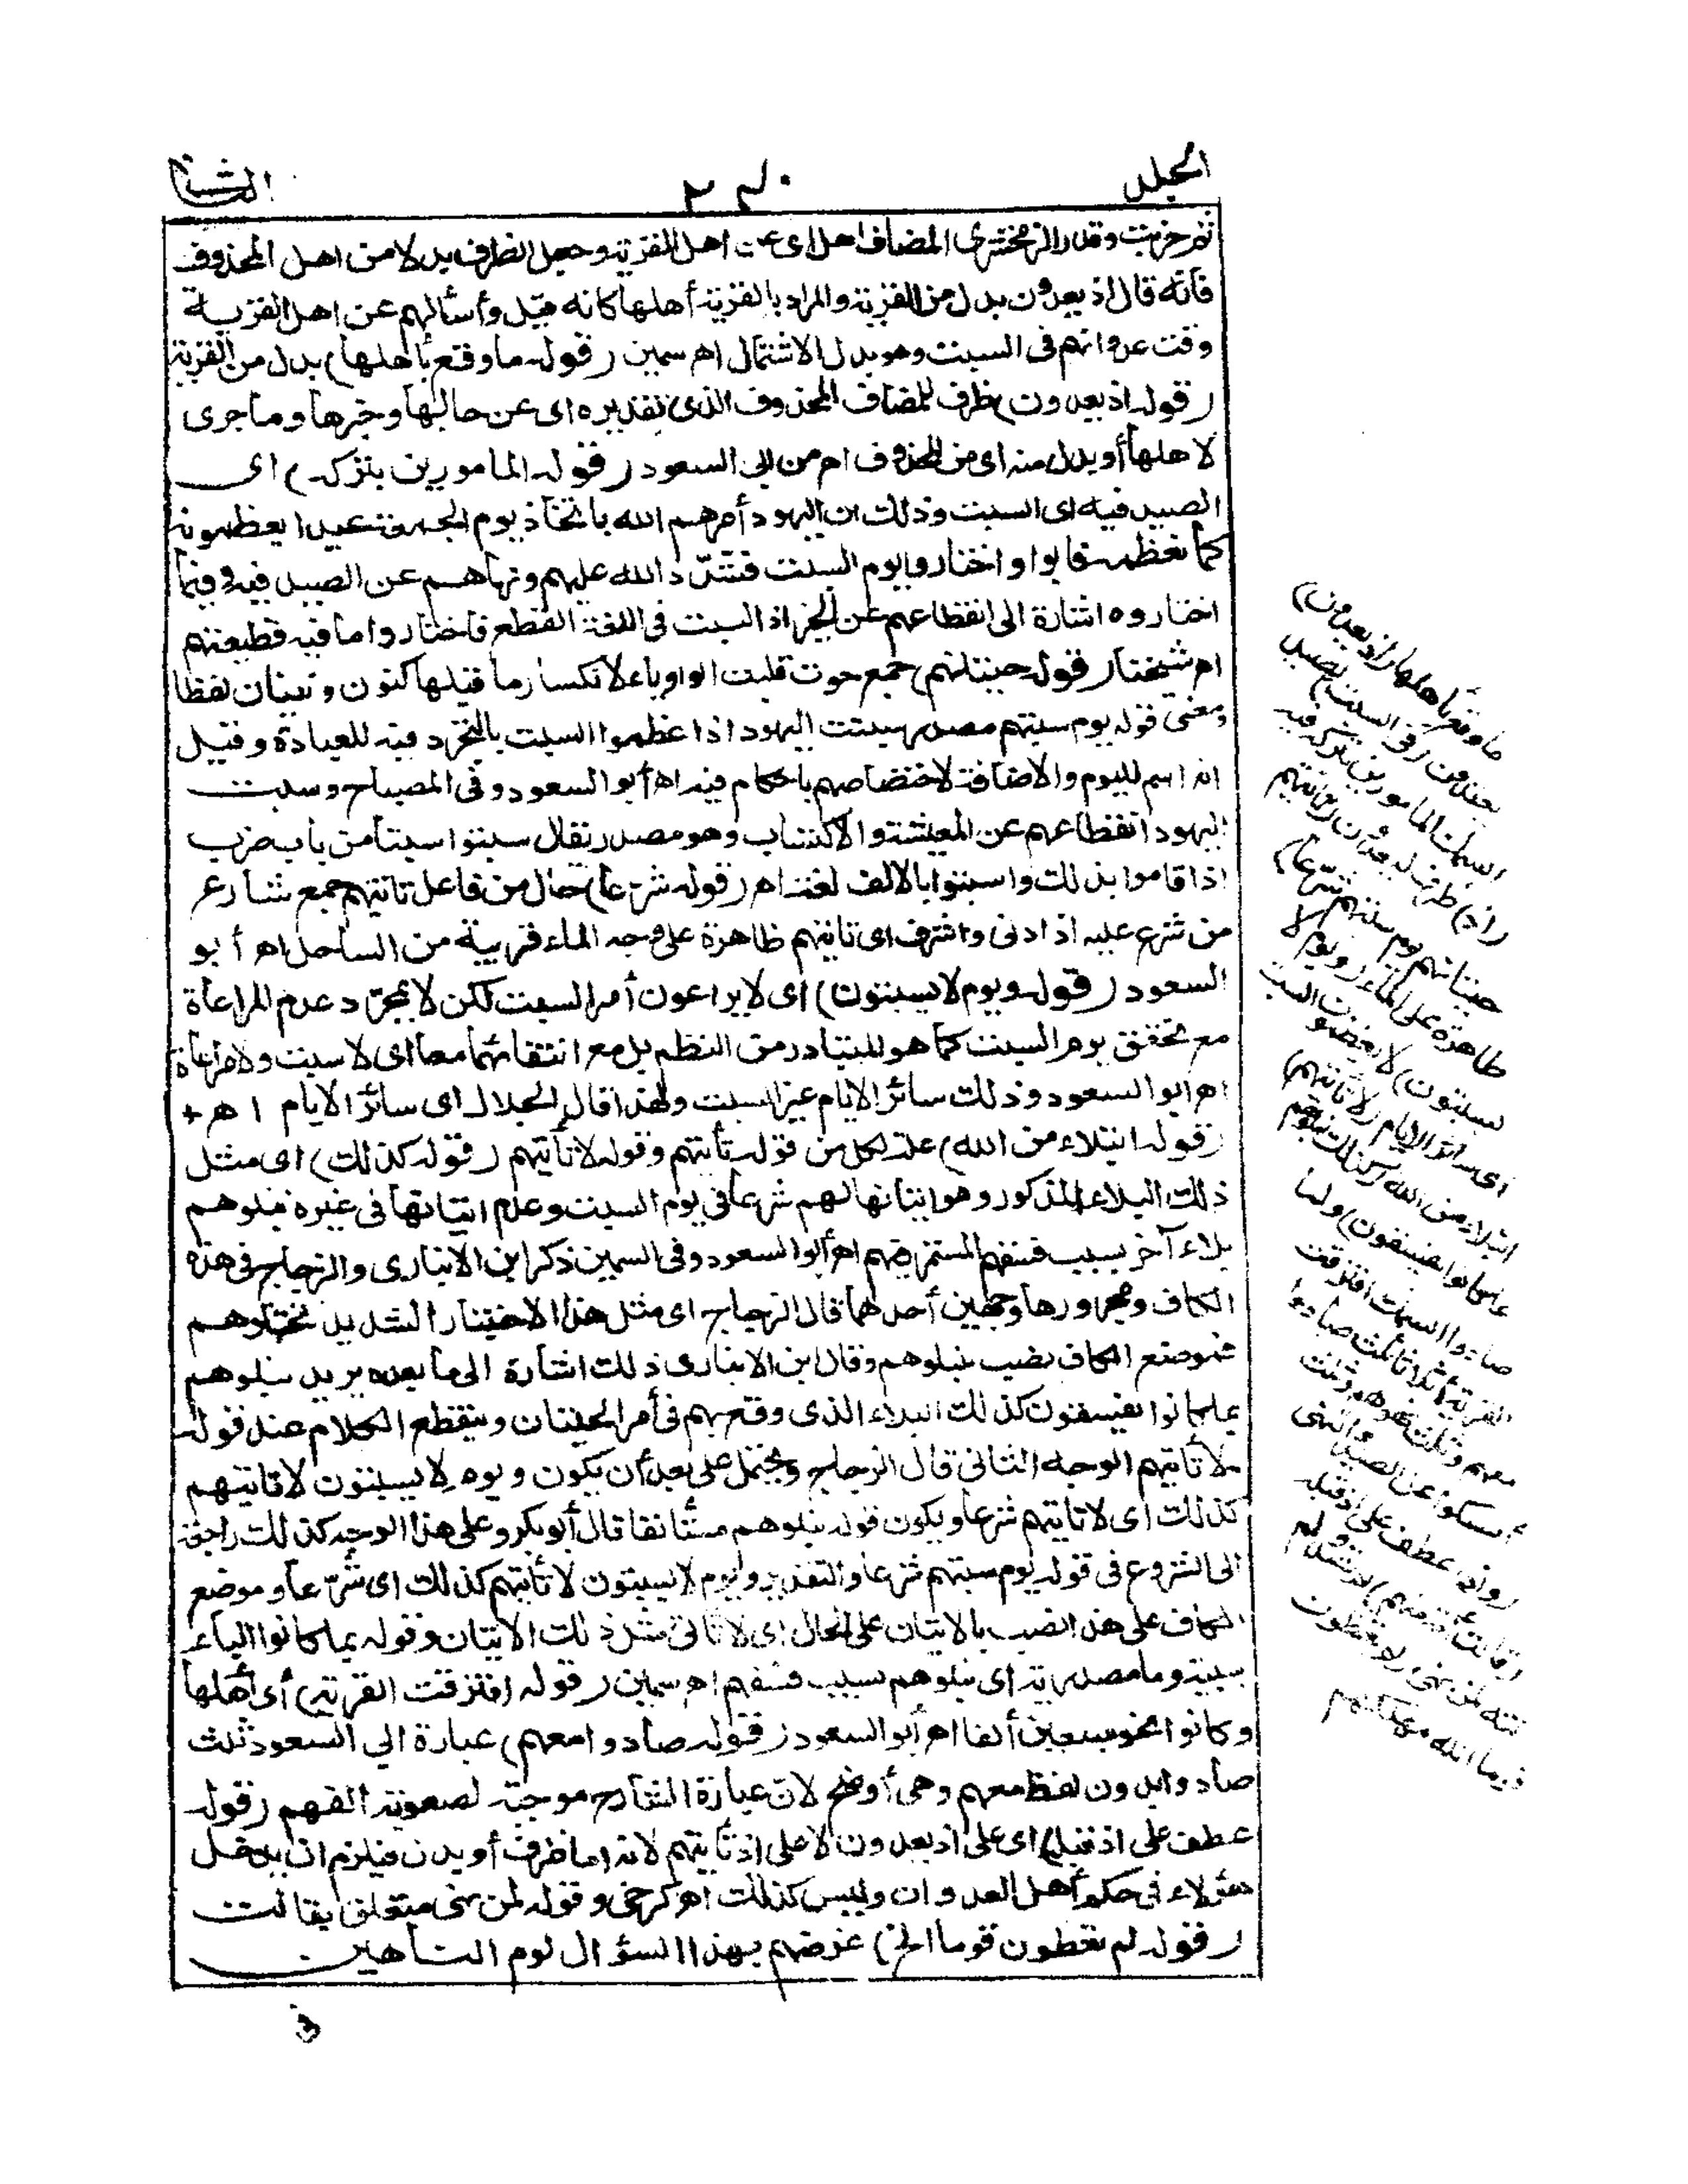 المجلد
٢٣٠
الثانى
ثم خربت وقدر الزمخشرى المضاف اهل اى عن اهل القرية وجعل الظرف بدلا من اهل المحذوف
فانه قال اذ يعدون بدل من القرية والمراد بالقرية أهلها كانه قيل وأسألهم عن اهل القرية
وقت عدوانهم فى السبت وهو بدل الاشتمال اهـ سمين (قوله ما وقع بأهلها) بدل من القرية
(قوله اذ يعدون) ظرف للمضاف المحذوف الذى تقديره اى عن حالها وخبرها وما جرى
لاهلها أو بدل منه اى من المحذوف اهـ من ابى السعود (قوله المامورين بتركه) اى
الصيد فيه اى السبت وذلك ان اليهود أمرهم الله باتخاذ يوم الجمعة عيدا يعظمونه
كما نعظمه فابوا واختاروا يوم السبت فشدّد الله عليهم ونهاهم عن الصيد فيه وفيما
اختاروه اشارة الى انقطاعهم عن الخير اذ السبت فى اللغة القطع فاختاروا ما فيه قطيعتهم
اهـ شيخنا (قوله حيتانهم) جمع حوت قلبت الواو ياء لانكسار ما قبلها كنون ونينان لفظا
ومعنى قوله يوم سبتهم مصدر سبتت اليهود اذا عظموا السبت بالتجرد فيه للعبادة وقيل
انه اسم لليوم والاضافة لاختصاصهم باحكام فيه اهـ أبو السعود وفى المصباح وسبت
اليهود انقطاعهم عن المعيشة والاكتساب وهو مصدر يقال سبتوا سبتا من باب ضرب
اذا قاموا بذلك واسبتوا بالالف لغة اهـ (قوله شرّعا) حال من فاعل تاتيهم جمع شارع
من شرع عليه اذا دنى واشرف اى تاتيهم ظاهرة على وجه الماء قريبة من الساحل اهـ أبو
السعود (قوله ويوم لا يسبتون) اى لا يراعون أمر السبت لكن لا بمجرّد عدم المراعاة
مع تحقق يوم السبت كما هو المتبادر من النظم بل مع انتقائهما معا اى لا سبت ولا مراعاة
اهـ ابو السعود وذلك سائر الايام غير السبت ولهذا قال الجلال اى سائر الايام اهـ +
(قوله ابتلاء من الله) علة لكل من قوله تأتيهم وقوله لا تأتيهم (قوله كذلك) اى مثل
ذلك البلاء المذكور وهو اتيانها لهم شرعا فى يوم السبت وعدم اتيانها فى غيره نبلوهم
بلاء آخر بسبب فسقهم المستمر منهم اهـ أبو السعود وفى السمين ذكر ابن الانبارى والزجاج فى هذه
الكاف ومجرورها وجهين أحدهما قال الزجاج اى مثل هذا الاختبار الشديد نختبرهم
فموضع الكاف نصب بنبلوهم وقال ابن الانبارى ذلك اشارة الى ما بعده يريد نبلوهم
بما كانوا يفسقون كذلك البلاء الذى وقع بهم فى أمر الحيتان وينقطع الكلام عند قوله
لا تأتيهم الوجه الثانى قال الزجاج ويحتمل على بعد أن يكون ويوم لا يسبتون لا تاتيهم
كذلك اى لا تاتيهم شرعا ويكون قوله نبلوهم مستأنفا قال أبو بكر وعلى هذا الوجه كذلك راجعة
الى الشروع فى قوله يوم سبتهم شرعا والتقدير ويوم لا يسبتون لا تأتيهم كذلك اى شرّعا وموضع
الكاف على هذا نصب بالاتيان على الحال اى لا تاتى مثل ذلك الاتيان وقوله بما كانوا الباء
سببية وما مصدرية اى نبلوهم بسبب فسقهم اهـ سمين (قوله افترقت القرية) أى أهلها
وكانوا نحو سبعين ألفا اهـ أبو السعود (قوله صادوا معهم) عبارة ابي السعود ثلث
صادوا بدون لفظ معهم وهى أوضح لان عبارة الشارح موجبة لصعوبة الفهم (قوله
عطف على اذ قبله) اى على اذ يعدون لا على اذ تأتيهم لانه اما ظرف أو بدل فيلزم ان يدخل
هؤلاء فى حكم أهل العدوان وليس كذلك اهـ كرخى وقوله لمن نهى متعلق بقالت
(قوله لم تعظون قوما الخ) غرضهم بهذا السؤال لوم الناهين
ما وقع بأهلها (اذ يعدون)
يعتدون (فى السبت) بصيد
السمك المامورين بتركه فيه
(اذ) ظرف ليعدون (تاتيهم
حيتانهم يوم سبتهم شرّعا)
ظاهرة على الماء (ويوم لا
يسبتون) لا يعظمون السبت
اى سائر الايام (لا تاتيهم)
ابتلاء من الله (كذلك نبلوهم
بما كانوا يفسقون) ولما
صادوا السمك افترقت
القرية أثلاثا ثلث صادوا
معهم وثلث نهوهم وثلث
أمسكوا عن الصيد والنهى
(واذ) عطف على اذ قبله
(قالت أمة منهم) لم تصد ولم
تنه لمن نهى (لم تعظون
قوما الله مهلكهم